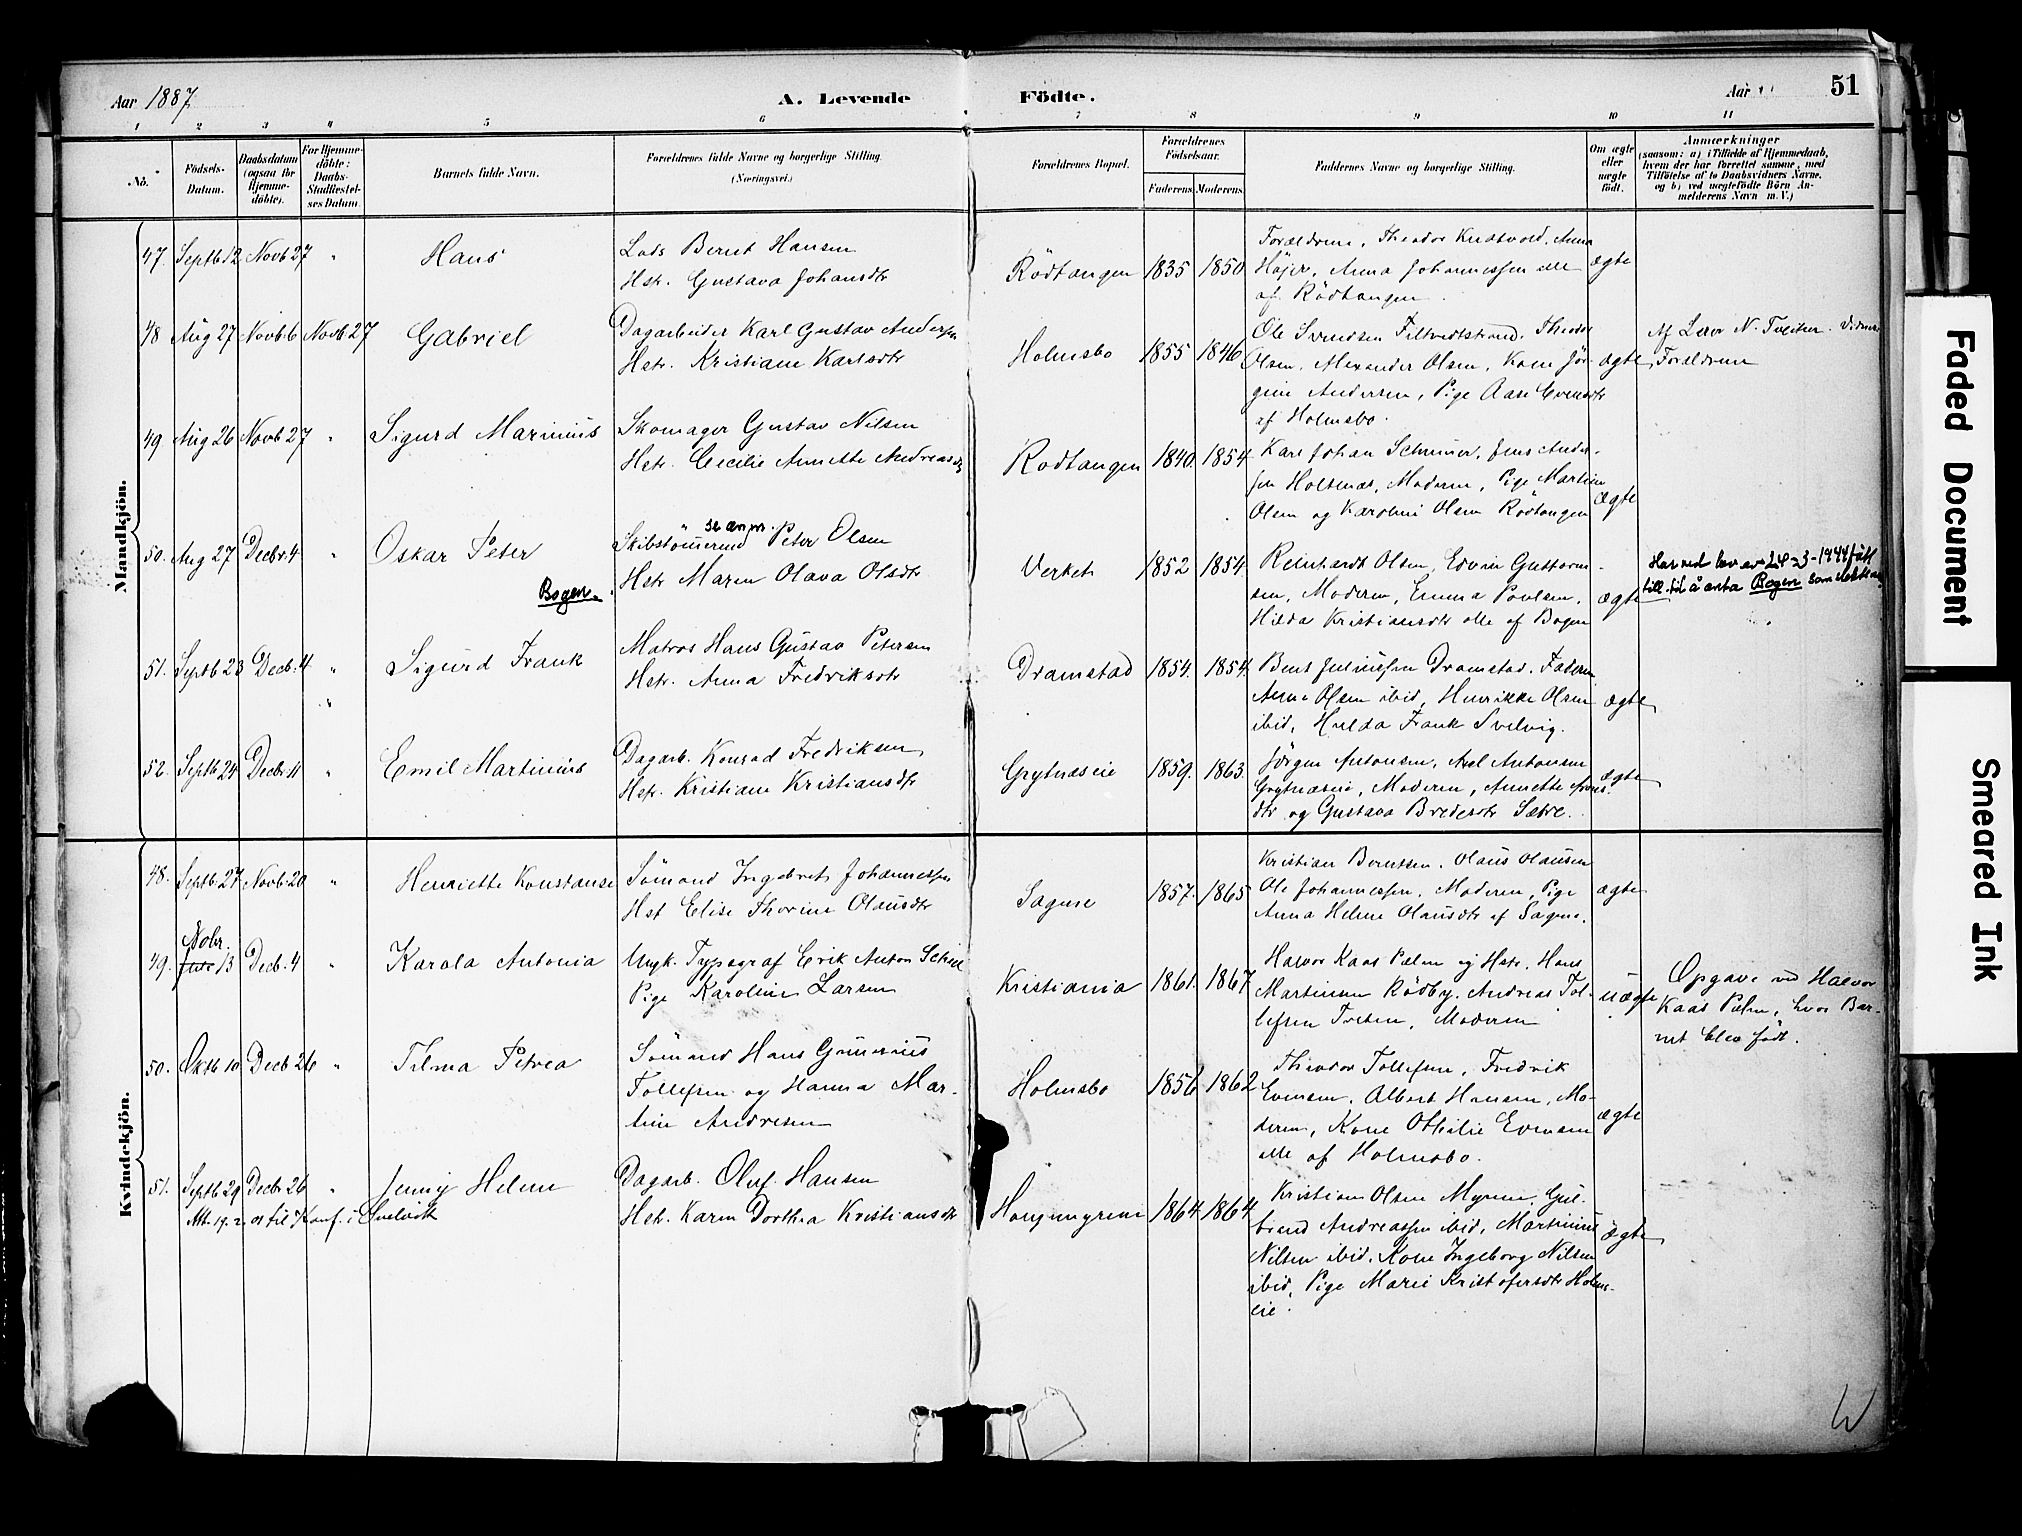 Aar 1887
A. Levende Födte.
Aar " 51
1 2 3 4 5 6 7 8 9 10 11
No.
Födsels-Datum.
Daabsdatum (ogsaa for Hjemme-döbte).
For Hjemme-döbte: Daabs-Stadfæstel-ses Datum.
Barnets fulde Navn.
Forældrenes fulde Navne og borgerlige Stilling. (Næringsvei.)
Forældrenes Bopæl.
Forældrenes Födselsaar.
Faderens. Moderens.
Faddernes Navne og borgerlige Stilling.
Om ægte eller uægte födt.
Anmærkninger
(saasom: a) i Tilfælde af Hjemmedaab,
hvem der har forrettet samme, med
Tilföielse af to Daabsvidners Navne,
og b) ved uægtefödte Börn An-
melderens Navn m.V.)
Mandkjön.
47. Septb 12 Novb 27 " Hans
Lods Bernt Hansen
Hstr. Gustava Johansdtr
Rödtangen 1835 1850
Forældrene, Theodor Knatvold, Anna
Höjer, Anna Johannessen alle
af Rödtangen.
ægte
48 Aug 27 Novb. 6 Novb 27 Gabriel
Dagarbeider Karl Gustav Andersen
Hstr. Kristiane Karlsdtr
Holmsbo 1855 1846
Ole Svendsen Filtvedtstrand, Theodor
Olsen, Alexander Olsen, Kone Jör-
gine Andersen, Pige Aase Evensdtr
af Holmsbo.
ægte
Af Lærer N. Tveiten. Vidner
Forældrene
49 Aug 26 Novb 27 " Sigurd Marinius
Skomager Gustav Nilsen
Hstr. Cecilie Annette Andreasdtr
Rödtangen 1840. 1854
Karl Johan Schriner, Jens Ander-
sen Holtnæs, Moderen, Pige Martine
Olsen og Karoline Olsen Rödtangen
ægte
50. Aug 27 Decbr. 4 " Oskar Peter
Bogen.
se anm.
Skibstömmermd Peter Olsen
Hstr Maren Olava Olsdtr
Verket 1852 1854
Reinhardt Olsen, Edvin Guttorm-
sen, Moderen, Emma Povlsen,
Hilda Kristiansdtr alle af Bogen
ægte
Har ved lov av 24-3-1944 fått
till. til å anta Bogen som slektsnavn
51. Septb 23 Decb. 4 " Sigurd Frank
Matros Hans Gustav Petersen
Hstr. Anna Fredriksdtr
Dramstad 1854. 1854.
Bent Juliussen Dramstad, Faderen
Anne Olsen ibid, Henrikke Olsen
ibid, Hulda Frank Svelvig.
ægte
52. Septb 24 Decbr. 11 " Emil Martinius
Dagarb. Konrad Fredriksen
Hstr. Kristiane Kristiansdtr
Grytnæseie 1859. 1863.
Jörgen Antonsen, Axel Antonsen
Grytnæseie, Moderen, Annette
dtr og Gustava Bredesdtr Sætre.
ægte
Kvindekjön.
48. Septb. 27 Novb. 20 " Henriette Konstanse
Sömand Ingebret Johannessen
Hst Elise Thorine Olausdtr
Sagene 1857. 1865
Kristian Berntsen, Olaus Olausen
Ole Johannessen, Moderen, Pige
Anna Helene Olausdtr af Sagene.
ægte
49. Nobr. 13 Decb. 4 " Karola Antonia
Ungk. Typograf Erik Anton
Pige Karoline Larsen
Kristiania 1861. 1867
Halvor Kaas Palm og Hstr. Hans
Martinsen Rödby, Andreas Tol-
lefsen Tveten, Moderen
uægte
Opgave ved Halvor
Kaas Palm, hvor Bar-
net blev født.
50. Oktb 10 Decb 26 " Tilma Petrea
Sömand Hans Gunerius
Tollefsen og Hanna Mar-
tine Andresen
Holmsbo 1856 1862
Theodor Tollefsen, Fredrik
Evensen, Albert Hansen, Mo-
deren, Kone Othilie Evensen
alle af Holmsbo.
ægte
51. Septb 29 Decbr 26 " Jenny Helene
Att. 19. 2. 01 til Konf. i Svelvik
Dagarb. Oluf Hansen
Hstr. Karen Dorthea Kristiansdtr
Haugnmyrene 1864. 1864
Kristian Olsen Myrene, Gul-
brand Andreassen ibid, Martinius
Nilsen ibid, Kone Ingeborg Nilsen
ibid, Pige Marie Kristofersdtr Holms-
eie.
ægte
Faded Document
Smeared Ink